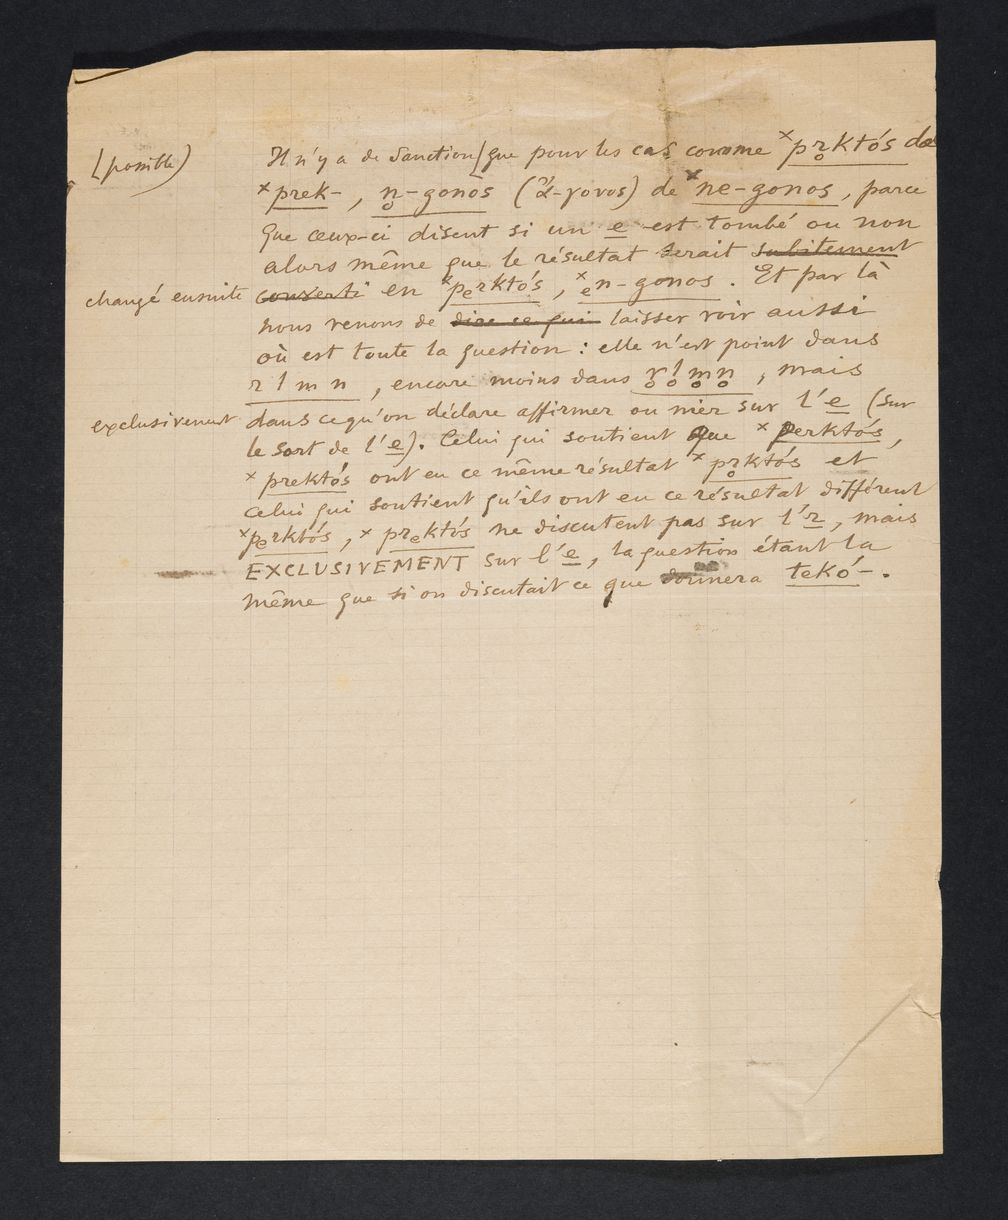 (possible)
Il n'y a de sanction[ que pour les cas comme ˣpr̥któs de
ˣprek- , n̥-gonos (ἄ-γονος) de ˣne-gonos, parce
que ceux-ci disent si un e est tombé ou non
alors même que le résultat serait subitement
changé ensuite
converti en ˣpₑrktós, ˣₑn-gonos. Et par là
nous venons de dire ce qui laisser voir aussi
où est toute la question : elle n'est point dans
r l m n , encore moins dans r̥ l̥ m̥ n̥ , mais
exclusivement
dans ce qu'on déclare affirmer ou nier sur l'e (sur
le sort de l'e). Celui qui soutient que ˣperktós,
ˣprektós ont eu ce même résultat ˣpr̥któs et
celui qui soutient qu'ils ont eu ce résultat différent
ˣpₑrktós, ˣprₑktós ne discutent pas sur l'r, mais
EXCLUSIVEMENT sur l'e, la question étant la
même que si on discutait ce que donnera tekó-.